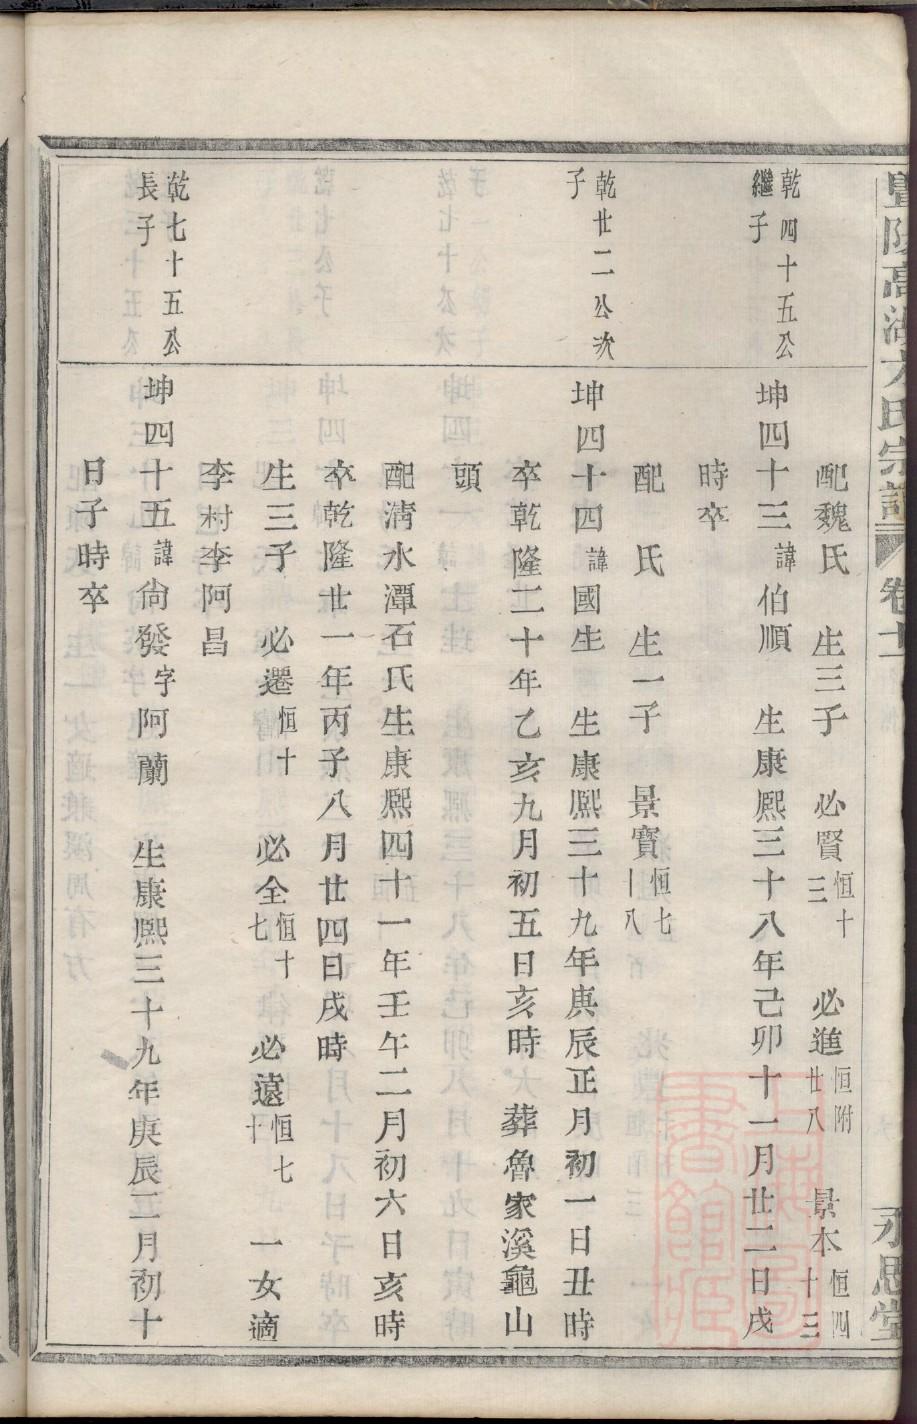 暨陽高湖方氏宗譜 卷十一 永思堂
配魏氏 生三子 必賢恒十三 必進恒附廿八 景本恒四十三
乾四十五公繼子
坤四十三諱伯順 生康熙三十八年己卯十一月廿二日戌
時卒
配 氏 生一子 景寳恒七十八
乾廿二公次子
坤四十四諱國生 生康熙三十九年庚辰正月初一日丑時
卒乾隆二十年乙亥九月初五日亥時 葬魯家溪龜山
頭
配淸水潭石氏生康熙四十一年壬午二月初六日亥時
卒乾隆廿一年丙子八月廿四日戌時
生三子 必遷恒十 必全恒十七 必遠恒七十 一女適
李村李阿昌
乾七十五公長子
坤四十五諱尙發字阿蘭 生康熙三十九年庚辰五月初十
日子時卒